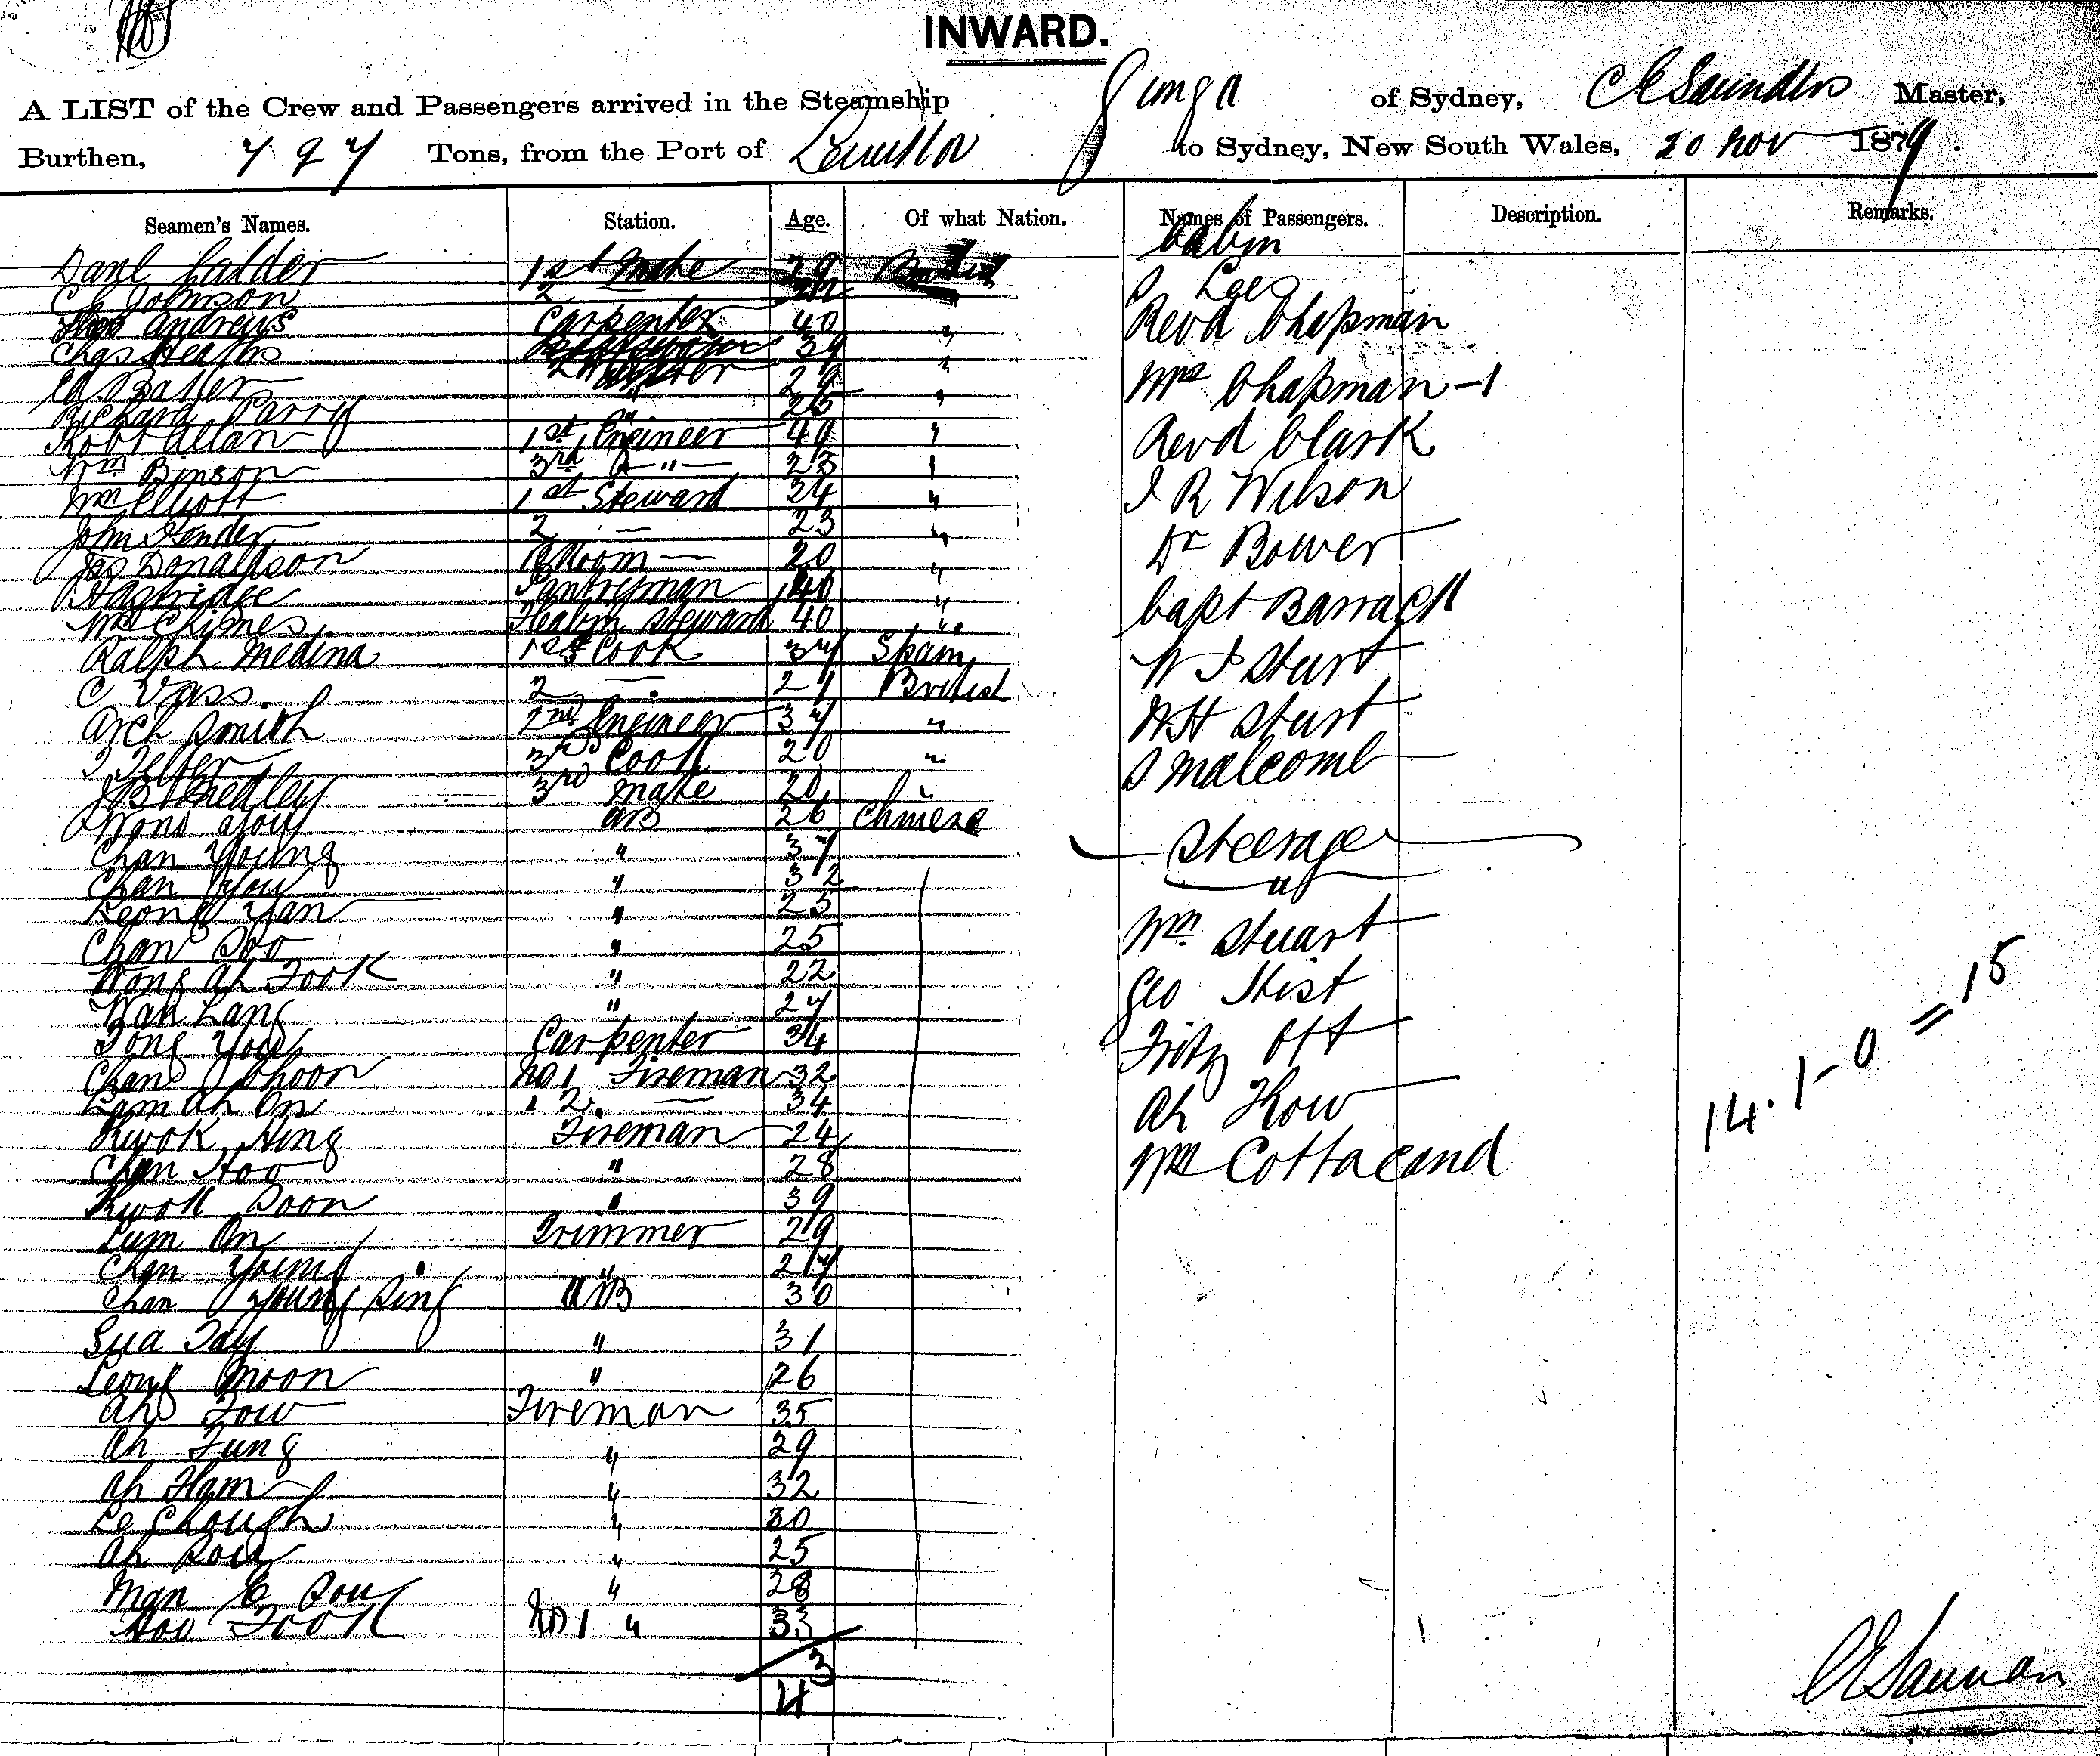 INWARD.
A LIST of the Crew and Passengers arrived in the Steamship Gunga of Sydney, C E Saunders Master,
Burthen, 797 Tons, from the Port of to Sydney, New South Wales, 20 Nov 1879.
Seamen's Names. Station. Age. Of what Nation. Names of Passengers. Description. Remarks.
Cabin
Danl Calder 1st Mate 29 British
C Johnson 2
Andrews Carpenter 40 "
Chas 39 "
29 "
Richard Parry " 25
Robt Allan 1st Engineer 49 "
Wm Binson 3rd " 23 "
Wm Elliott 1st Steward 34 "
John 2 — 23 "
Jas Donaldson Room — 20 "
Pantryman 40 "
Wm Steward 40 "
Ralph Medina 1st Cook 37 Spain
C Vass 2 — 21 British
Arch Smith 2nd Engineer 37 "
3rd Cook 20 "
3rd Mate 20 "
AB 26 Chinese
Chan Young " 37
Chan You " 32
Leong Yan " 25
Chan Soo " 25
Wong Ah Fook " 22
Wah Lang " 27
Tong You Carpenter 34
Chan Choon No 1 Fireman 32
Lam Ah On " 2 — 34
Kwok Hing Fireman 24
Chan Hoo " 28
Kwok Soon " 39
Lum On Trimmer 29
Chan Young " 27
Chan Young Sing AB 30
Sua Tay " 31
Leong Moon " 26
Ah Fow Fireman 35
Ah Fung " 29
Ah Ham " 32
Le Chough " 30
Ah " 25
Man " 28
Hoo Fook No 1 " 33
3
4
Lee
Revd Chapman
Mrs Chapman - 1
Revd Clark
J R Wilson
Dr Bower
Capt Barrack
W J Sturt
W H Sturt
S Malcomb
Steerage
Wm Stuart
Geo Hist
Fritz Ott
Ah How
Wm Cottacand
14 . 1 - 0 = 15
C E Saunders